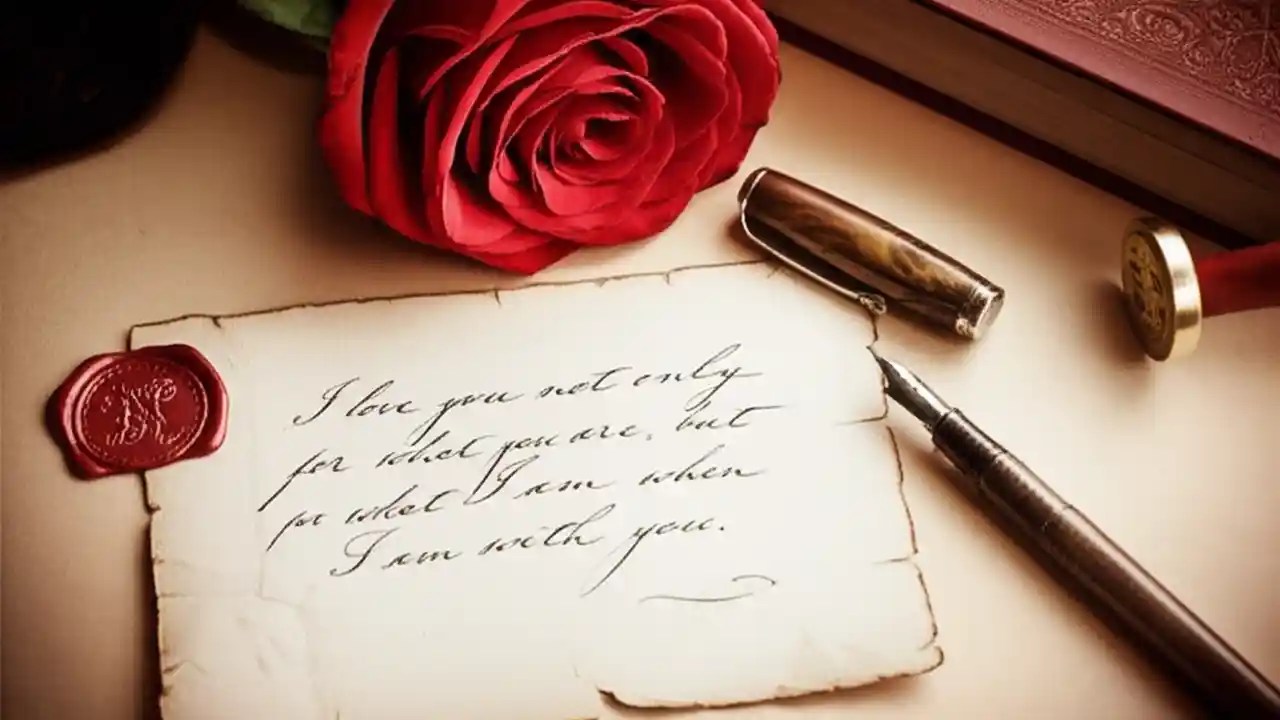 I love you not only
for what you are, but
for what I am when
I am with you.